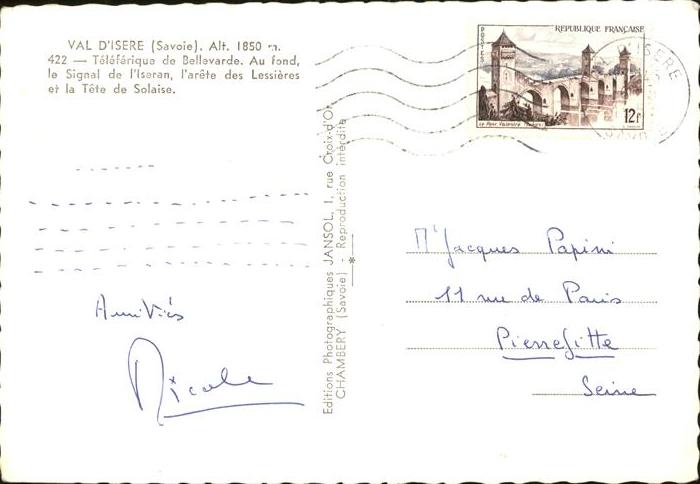 VAL D'ISERE (Savoie). Alt. 1850 m.
422 — Téléférique de Bellevarde. Au fond,
le Signal de l'Iseran, l'arête des Lessières
et la Tête de Solaise.
POSTES
REPUBLIQUE FRANÇAISE
Le Pont Valentré
12f
ISERE
Amitiés
Nicole
Editions Photographiques JANSOL, 1, rue Croix-d'Or
CHAMBERY (Savoie) - Reproduction interdite
Mr Jacques Papini
11 rue de Paris
Pierrefitte
Seine